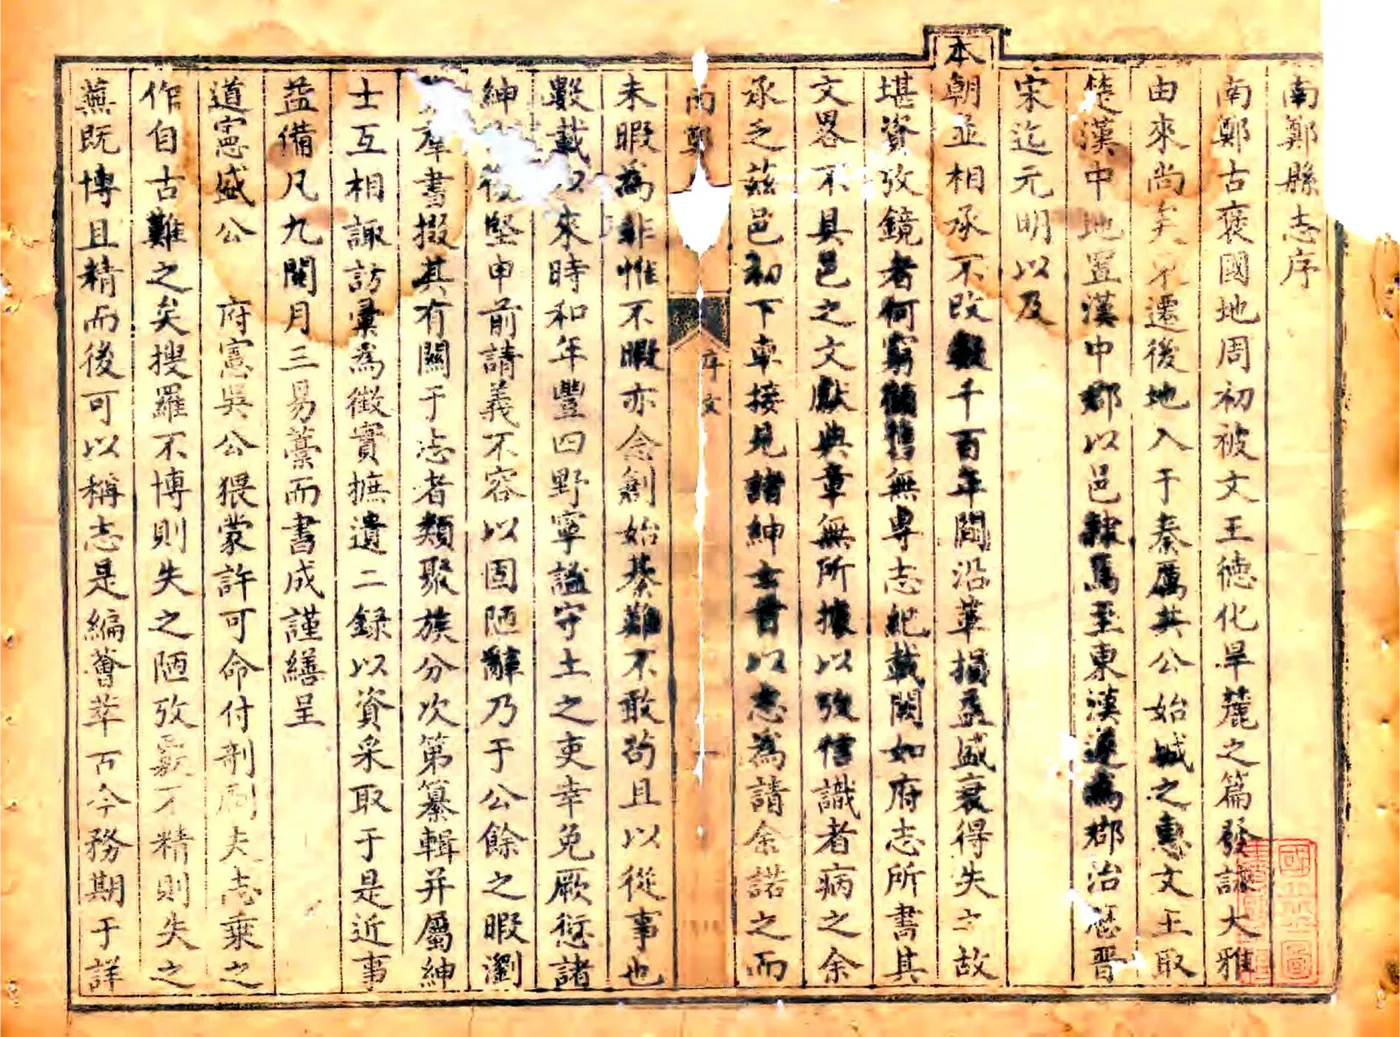 南鄭縣志序
南鄭古褒國地周初被文王徳化旱麓之篇發詠大雅
由來尚矣東遷後地入于秦厲共公始城之惠文王取
楚漢中地置漢中郡以邑隸焉至東漢遂為郡治歷晉
宋迄元明以及
本朝並相承不改數千百年間沿革損益盛衰得失之故
堪資攷鏡者何窮顧舊無専志紀載闕如府志所書其
文畧不具邑之文獻典章無所據以徴信識者病之余
承乏茲邑初下車接見諸紳士首以志為請余諾之而
南鄭
序文
一
未暇為非惟不暇亦念創始綦難不敢苟且以從事也
數載以來時和年豐四野寧謐守土之吏幸免厥愆諸
紳 復堅申前請義不容以固陋辭乃于公餘之暇瀏
羣書掇其有關于志者類聚族分次第纂輯并屬紳
士互相諏訪彙為徴實摭遺二録以資采取于是近事
益備凡九閱月三易藁而書成謹繕呈
道憲盛公 府憲吳公猥蒙許可命付剞劂夫志乗之
作自古難之矣搜羅不博則失之陋攷覈不精則失之
蕪既博且精而後可以稱志是編薈萃古今務期于詳